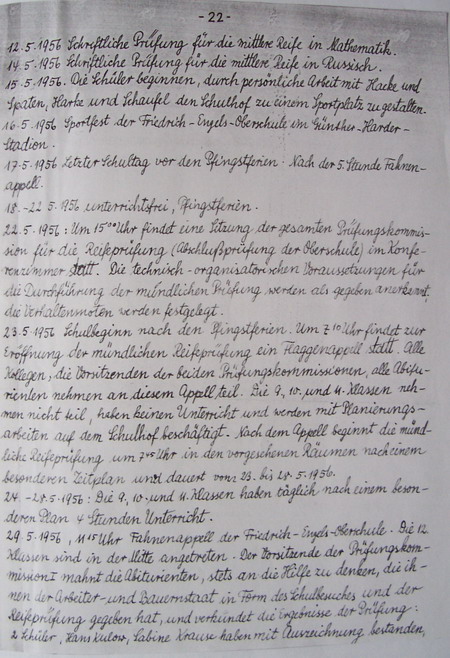 - 22 -
12.5.1956 Schriftliche Prüfung für die mittlere Reife in Mathematik.
14.5.1956 Schriftliche Prüfung für die mittlere Reife in Russisch.
15.5.1956. Die Schüler beginnen, durch persönliche Arbeit mit Hacke und
Spaten, Harke und Schaufel den Schulhof zu einem Sportplatz zu gestalten.
16.5.1956 Sportfest der Friedrich-Engels-Oberschule im Günther-Harder-
Stadion.
17.5.1956 Letzter Schultag vor den Pfingstferien. Nach der 5. Stunde Fahnen-
appell.
18.-22.5.1956 unterrichtsfrei, Pfingstferien.
22.5.1956: Um 15⁰⁰ Uhr findet eine Sitzung der gesamten Prüfungskommis-
sion für die Reifeprüfung (Abschlußprüfung der Oberschule) im Konfe-
renzimmer statt. Die technisch-organisatorischen Voraussetzungen für
die Durchführung der mündlichen Prüfung werden als gegeben anerkannt,
die Verhaltensnoten werden festgelegt.
23.5.1956 Schulbeginn nach den Pfingstferien. Um 7¹⁰ Uhr findet zur
Eröffnung der mündlichen Reifeprüfung ein Flaggenappell statt. Alle
Kollegen, die Vorsitzenden der beiden Prüfungskommissionen, alle Abitu-
rienten nehmen an diesem Appell teil. Die 9., 10. und 11. Klassen neh-
men nicht teil, haben keinen Unterricht und werden mit Planierungs-
arbeiten auf dem Schulhof beschäftigt. Nach dem Appell beginnt die münd-
liche Reifeprüfung um 7⁴⁵ Uhr in den vorgesehenen Räumen nach einem
besonderen Zeitplan und dauert vom 23. bis 28.5.1956.
24.-28.5.1956: Die 9., 10. und 11. Klassen haben täglich nach einem beson-
deren Plan 4 Stunden Unterricht.
29.5.1956, 11¹⁵ Uhr Fahnenappell der Friedrich-Engels-Oberschule. Die 12.
Klassen sind in der Mitte angetreten. Der Vorsitzende der Prüfungskom-
mission I mahnt die Abiturienten, stets an die Hilfe zu denken, die ih-
nen der Arbeiter- und Bauernstaat in Form des Schulbesuches und der
Reifeprüfung gegeben hat, und verkündet die Ergebnisse der Prüfung:
2 Schüler, Hans Kulow, Sabine Krause haben mit Auszeichnung bestanden,